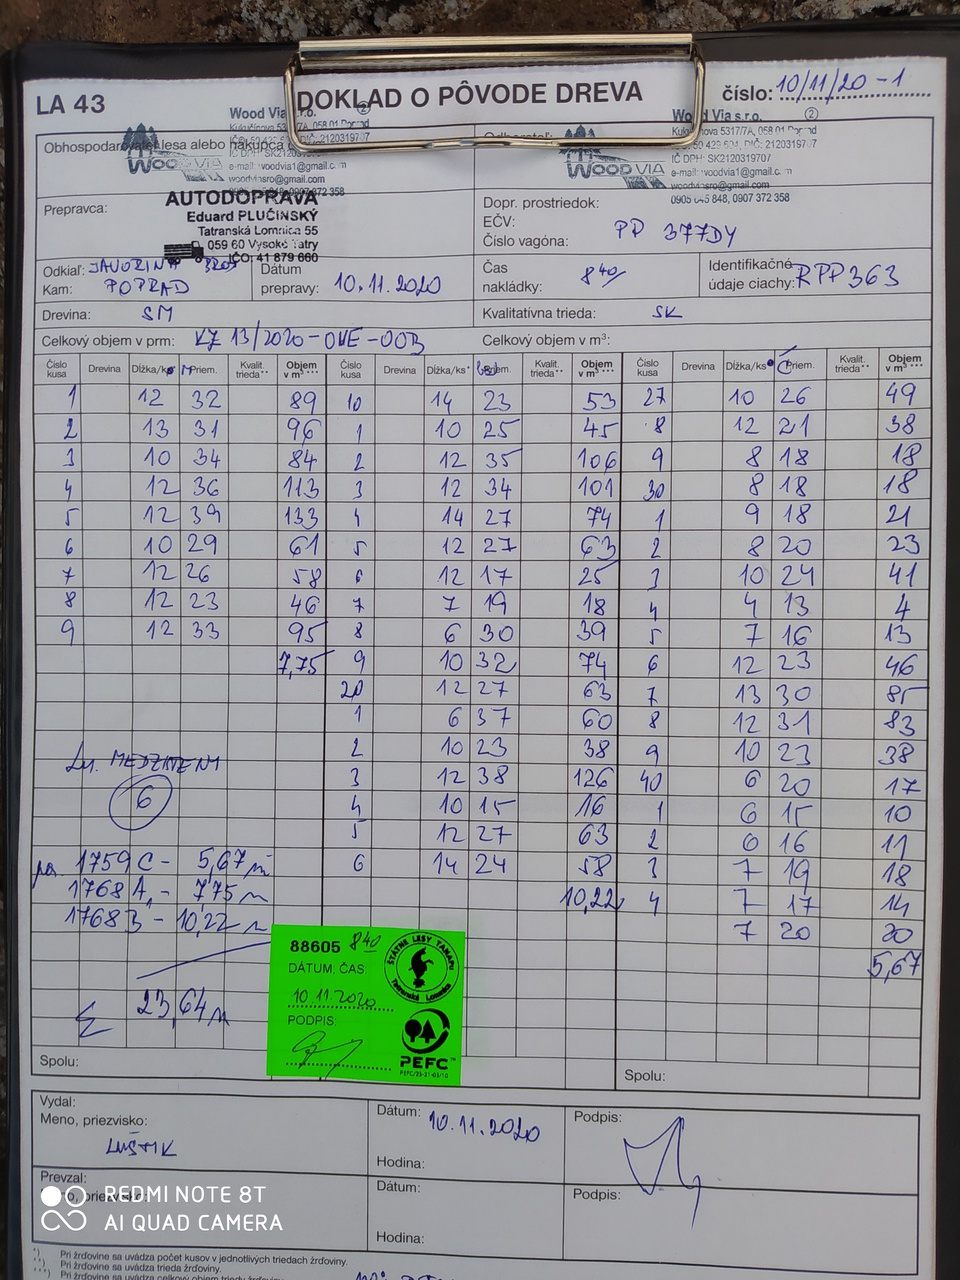 LA 43
DOKLAD O PÔVODE DREVA
číslo: 10/11/20 -1
Wood Via s.r.o. ②
Wood Via s.r.o. ②
Obhospodarovateľ lesa alebo nákupca
WOOD VIA
e-mail: woodvia1@gmail.com
0905 848, 0907 372 358
WOOD VIA
IČ DPH: SK2120319707
e-mail: woodvia1@gmail.com
woodviasro@gmail.com
848, 0907 372 358
Prepravca:
AUTODOPRAVA
Eduard PLUČINSKÝ
Tatranská Lomnica 55
059 60 Vysoké Tatry
IČO: 41 879 660
Dopr. prostriedok:
EČV:
Číslo vagóna: PP 377DY
Odkiaľ: JAVORINA
Kam: POPRAD
Dátum prepravy: 10.11.2020
Čas nakládky: 8 40
Identifikačné údaje ciachy: RPP363
Drevina: SM
Kvalitatívna trieda: SK
Celkový objem v prm: VZ 13/2020-OVE-OOB
Celkový objem v m³:
Číslo kusa Drevina Dĺžka/ks* Priem. Kvalit. trieda** Objem v m³*** Číslo kusa Drevina Dĺžka/ks* Priem. Kvalit. trieda** Objem v m³*** Číslo kusa Drevina Dĺžka/ks Priem. Kvalit. trieda** Objem v m³***
1 12 32 89 10 14 23 53 27 10 26 49
2 13 31 96 1 10 25 45 8 12 21 38
3 10 34 84 2 12 35 106 9 8 18 18
4 12 36 113 3 12 34 101 30 8 18 18
5 12 39 133 4 14 27 74 1 9 18 21
6 10 29 61 5 12 27 63 2 8 20 23
7 12 26 58 6 12 17 25 3 10 24 41
8 12 23 46 7 7 19 18 4 4 13 4
9 12 33 95 8 6 30 39 5 7 16 13
7,75 9 10 32 74 6 12 23 46
20 12 27 63 7 13 30 85
1 6 37 60 8 12 31 83
2 10 23 38 9 10 23 38
3 12 38 126 40 6 20 17
4 10 15 16 1 6 15 10
5 12 27 63 2 6 16 11
6 14 24 58 3 7 19 18
10,22 4 7 17 14
7 20 20
5,67
6
1759 C - 5,67 m
1768 A - 7,75 m
1768 B - 10,22 m
Σ 23,64 m
88605 8 40
DÁTUM, ČAS:
10.11.2020
PODPIS:
ŠTÁTNE LESY TANAPu
Tatranská Lomnica
PEFC™
PEFC/23-21-03/10
Spolu:
Spolu:
Vydal:
Meno, priezvisko:
LUŠTIK
Dátum: 10.11.2020
Hodina:
Podpis:
Prevzal:
priezvisko:
Dátum:
Hodina:
Podpis:
REDMI NOTE 8T
AI QUAD CAMERA
*) Pri žrďovine sa uvádza počet kusov v jednotlivých triedach žrďoviny.
**) Pri žrďovine sa uvádza trieda žrďoviny.
***) Pri žrďovine sa uvádza celkový objem triedy žrďoviny